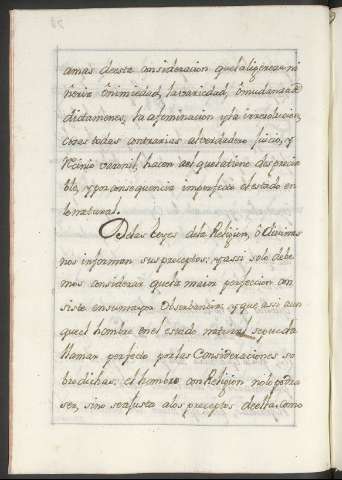 amas deesta consideracion que la ligereza ni
herir ò nimiedad, la variedad, ò mudanza de
dictamenes, la afeminacion y la irresolucion,
cosas todas contrarias al verdadero juicio, y
varonil, hacen aes que la tiene despreciа
ble, y por consequencia imperfecto el estado en
lo natural.
De las leyes de la Religion, ò divinas
nos informan sus preceptos: y assi solo debe
mos considerar que la maior perfeccion con
siste en su mayor observancia; y que assi aun
que el hombre en el estado natural se pueda
llamar perfecto por las Consideraciones so
bredichas: el hombre con Religion no lo podra
ser, sino se ajusta a los preceptos de ella. Como